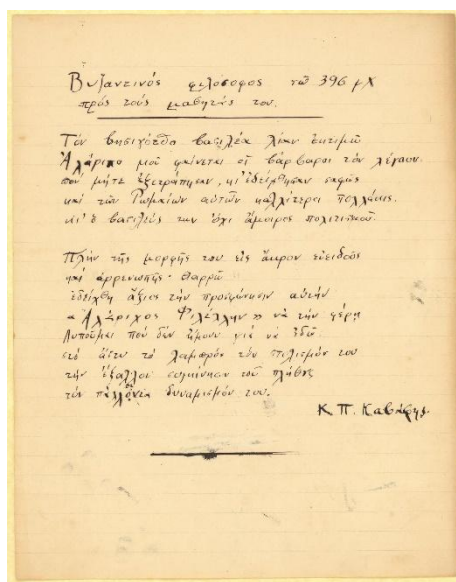 Βυζαντινός φιλόσοφος τῶ 396 μΧ
πρός τούς μαθητάς του.
Τόν βησιγότθο βασιλέα λίαν ἐκτιμῶ
Ἀλάριχο μοῦ φαίνεται οἱ βάρβαροι τόν λέγουν.
πού μήτε ἐξετράπησαν, κι' ἐδείχθησαν σαφῶς
καί τῶν Ρωμαίων αὐτῶν καλλίτεροι πολλάκις.
κι' ὁ βασιλεύς των ὄχι ἄμοιρος πολιτισμοῦ.
Πλήν τῆς μορφῆς του εἰς ἄκρον εὐειδοῦς
καί ἀρρενωπῆς - θαρρῶ
ἐδείχθη ἄξιος τήν προσφώνησιν αὐτήν
«Ἀλάριχος Φιλέλλην» νά τήν φέρῃ
Λυποῦμαι πού δέν ἤμουν γιά νά ἐδῶ
στό ἄστυ τό λαμπρόν τόν στολισμόν του
τήν ἔξαλλον συγκίνησιν τοῦ πλήθους
τόν πάλλοντα δυναμισμόν του.
Κ. Π. Καβάφης.